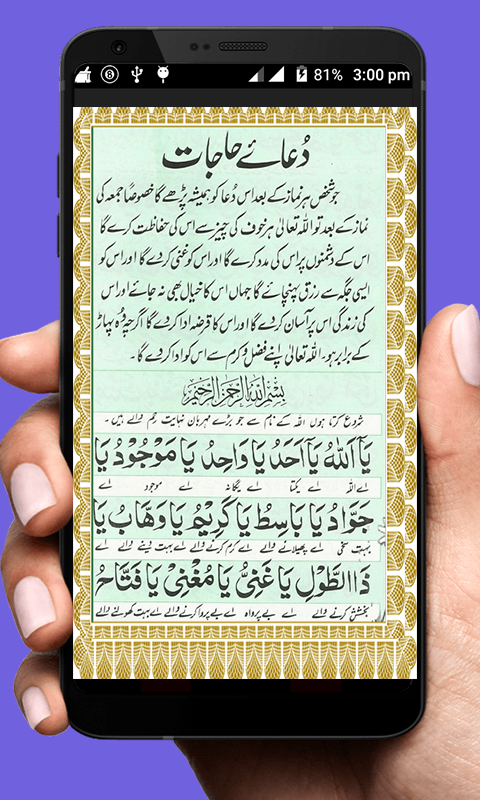 81% 3:00 pm
دُعائے حاجات
جو شخص ہر نماز کے بعد اس دُعا کو ہمیشہ پڑھے گا خصوصًا جمعہ کی
نماز کے بعد تو اللہ تعالیٰ ہر خوف کی چیز سے اس کی حفاظت کرے گا
اس کے دشمنوں پر اس کی مدد کرے گا اور اس کو غنی کر دے گا اور اس کو
ایسی جگہ سے رزق پہنچائے گا جہاں اس کا خیال بھی نہ جائے اور اس
کی زندگی اس پر آسان کر دے گا اور اس کا قرضہ ادا کر دے گا اگرچہ وہ پہاڑ
کے برابر ہو۔ اللہ تعالیٰ اپنے فضل و کرم سے اس کو ادا کر دے گا۔
بِسْمِ اللهِ الرَّحْمٰنِ الرَّحِيْمِ
شروع کرتا ہوں اللہ کے نام سے جو بڑے مہربان نہایت رحم والے ہیں۔
يَآ اَللّٰهُ يَآ اَحَدُ يَا وَاحِدُ يَا مَوْجُوْدُ يَا
اے اللہ اے یکتا اے یگانہ اے موجود اے
جَوَّادُ يَا بَاسِطُ يَا كَرِيْمُ يَا وَهَّابُ يَا
بہت سخی اے پھیلانے والے اے کرم کرنے والے اے بہت دینے والے اے
ذَا الطَّوْلِ يَا غَنِيُّ يَا مُغْنِيْ يَا فَتَّاحُ
بخشش کرنے والے اے بے پرواہ اے بے پروا کرنے والے اے بہت کھولنے والے